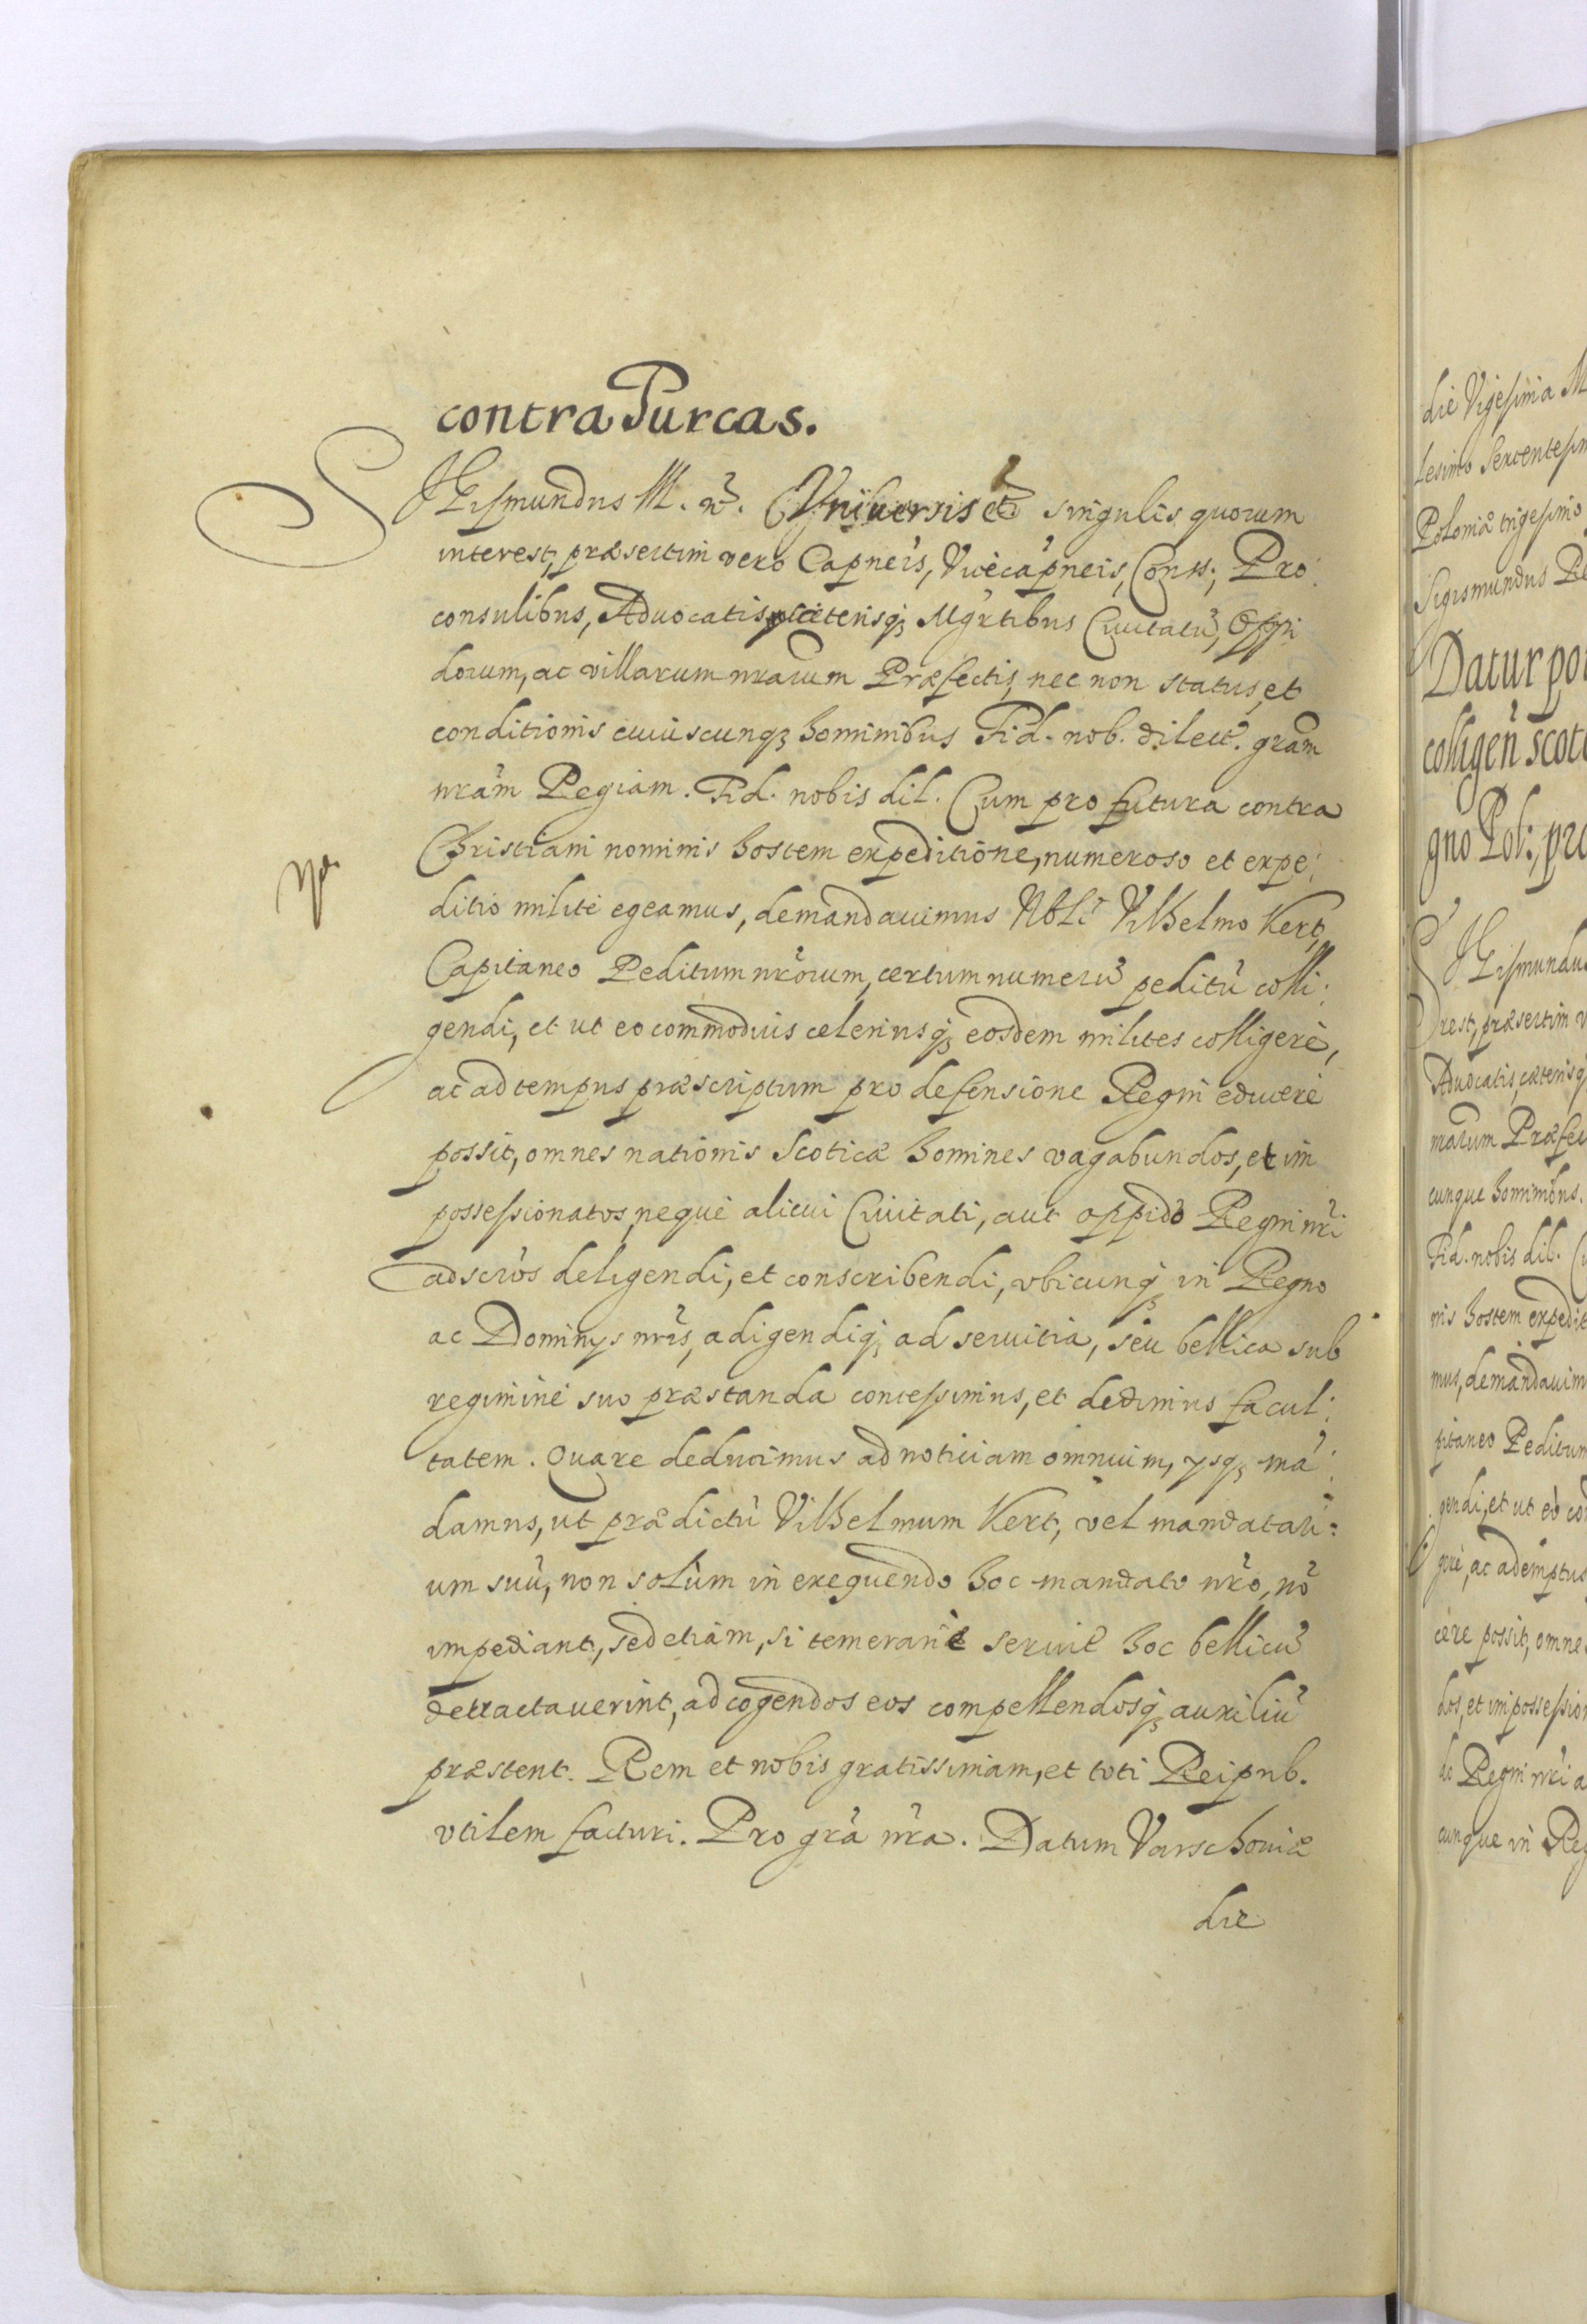 contra Turcas.
SJGismundus III. etc. Universis et singulis quorum
interest, præsertim vero Capneis, Vicecapneis, Conss; Pro:
consulibus, Advocatis, cæterisq3 Mgrtibus Civitatũ, Oppi
dorum, ac villarum nrarum Præfectis, nec non status, et
conditionis cuiuscunq3 hominibus Fid. nob. dilect. gram
nram Regiam. Fid. nobis dil. Cum pro futura contra
Christiani nominis hostem expeditione, numeroso et expe:
ditio militi egeamus, demandavimus Nbli Vilhelmo Kert,
Capitaneo Peditum nrorum, certum numerũ peditũ colli:
gendi, et ut eo commodius celeriusq3 eosdem milites colligere,
ac ad tempus præscriptum pro defensione Regni educere
possit, omnes nationis Scoticæ homines vagabundos, et im
possessionatos, neque alicui Civitati, aut oppido Regni nri
adscros deligendi, et conscribendi, ubicunq3 in Regno
ac Dominys nris, adigendiq3 ad servitia, seu bellica sub
regimine suo præstanda concessimus, et dedimus facul:
tatem. Quare deducimus ad noticiam omnium, ysq3 mã:
damus, ut prædictũ Vilhelmum Kert, vel mandatari:
um suũ, non solùm in exequendo hoc mandato nro, nõ
impediant, sed etiam, si temerariè servit hoc bellicũ
detractaverint, ad cogendos eos compellendosq3 auxiliũ
præstent. Rem et nobis gratissimam, et toti Reipub.
vtilem facturi. Pro gra nra. Datum Varschoviæ
die
die Vigesima M
lesimo Sexcentesim
Poloniæ trigesimo
Sigismundus Re
Datur po
colligen̄ scot
gno Pol:, pro
SJGismundu
rest, præsertim v
Advocatis, cæterisq
nrarum Præfec
cunque hominibus.
Fid. nobis dil. C
nis hostem expedit
mus, demandavim
pitaneo Peditum
gendi, et ut eò co
gere, ac ad temptus
cere possit, omne
dos, et impossession
do Regni nri a
cunque in Reg